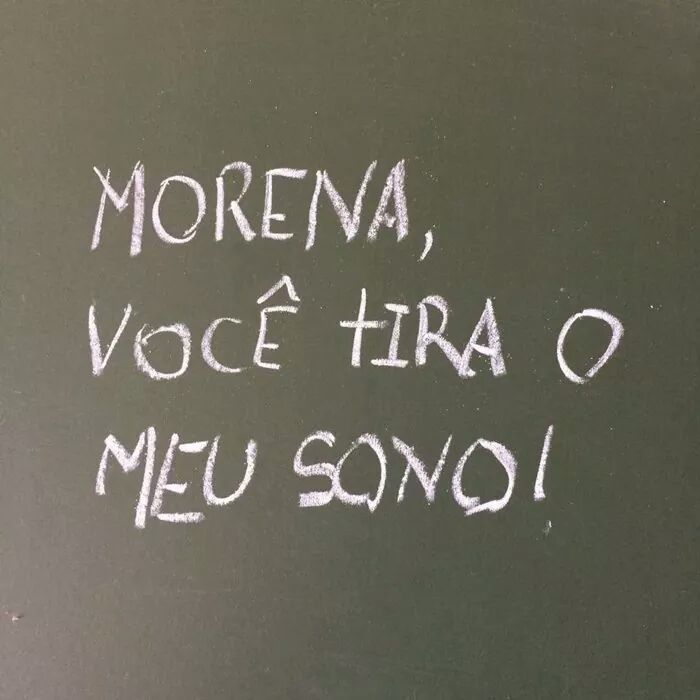 MORENA,
VOCÊ TIRA O
MEU SONO!